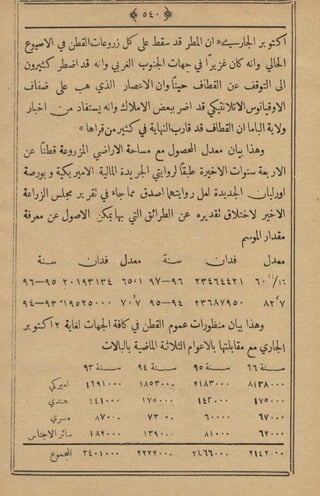 ﴿ ٥٤٠ ﴾
اكتوبر الجاري «ان المطر قد سقط على كل زروعات القطن في الاسبوع
الحالي وانه كان غزيرًا في جهات الجنوب الغربي وانه قد اضطر كثيرون
الى التوقف عن القطاف حينًا وان الاعصار الذي هب على ضفاف
الاوقيانوس الاتلانتيكي قد اضر ببعض الاملاك وانه يستفاد من اخبار
ولاية الباما ان القطاف قد قارب النهاية في كثير من قراها»
وهذا بيان معدل المحصول مع مساحة الاراضي المزروعة قطنًا عن
الاربعة سنوات الاخيرة طبقًا لروايتي الجريدة المالية الاميريكية وبورصة
اورليان الجديدة لعل روايتهما اصدق مما جاء في تقرير مجلس الزراعة
الاخير لاختلاف تقديره عن الطرائق التي بها يمكن الاصول عن معرفة
مقدار الموسم
معدل فدان سنة معدل فدان سنة
٦٠ ٢٣٤٦٤٤٢١ ٩٧-٩٦ ٦٥،١ ٢٠١٩٣١٣٤ ٩٥-٩٦
٨٢،٧ ٢٣٦٨٧٩٥٠ ٩٤-٩٥ ٧٠،٧ ١٩٥٢٥٠٠٠ ٩٣-٩٤
وهذا بيان منظورات عموم القطن في كافة الجهات لغاية ٢ اكتوبر
الجاري مع مقابلتها بالاعوام الثلاثة الماضية بالبالات
سنة ٩٦ سنة ٩٥ سنة ٩٤ سنة ٩٣
٢١٨٣٠٠٠ ١٨٥٣٠٠٠ ١٦٩١٠٠٠ اميركي
٤٧٥٠٠٠ ١٤٣٠٠٠ ١٧٥٠٠٠ هندي
٦٧٠٠٠ ٦٠٠٠٠ ٧٣٠٠٠ ٨٧٠٠٠ مصري
٦٢٠٠٠ ٨١٠٠٠ ١٣٩٠٠٠ ١٨٢٠٠٠ سائر الاجناس
٢٢٢٢٠٠٠ ٢٤٠١٠٠٠ المجموع